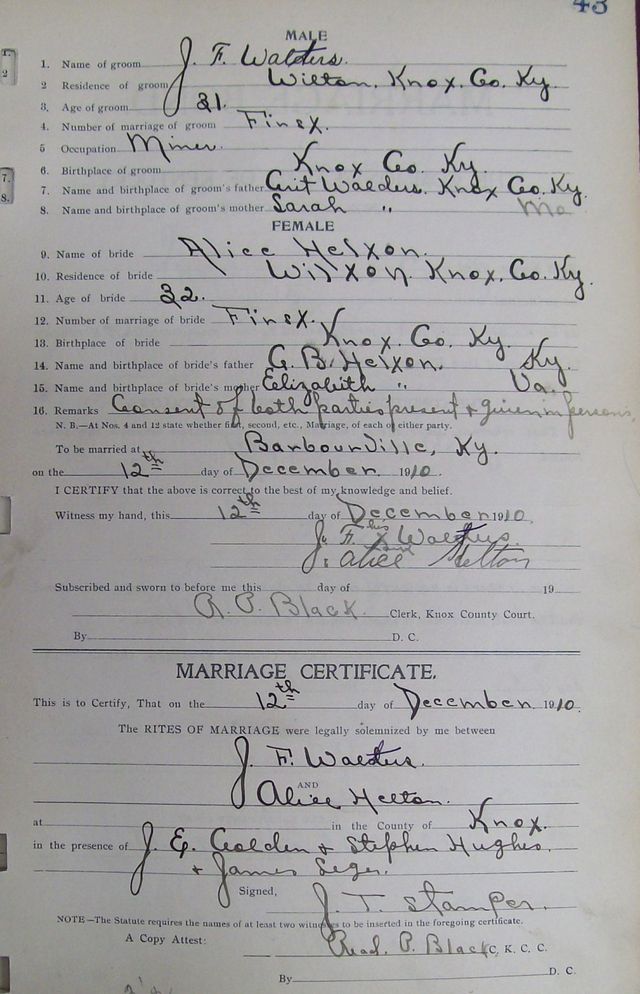 43
MALE
1. Name of groom J. F. Walters.
2 Residence of groom Wilton, Knox. Co. Ky.
3. Age of groom 21.
4. Number of marriage of groom First.
5 Occupation Miner
6. Birthplace of groom Knox Co. Ky.
7. Name and birthplace of groom's father Walters. Knox Co. Ky.
8. Name and birthplace of groom's mother Sarah "
FEMALE
9. Name of bride Alice Helton.
10. Residence of bride Wilton. Knox. Co. Ky.
11. Age of bride 22.
12. Number of marriage of bride First.
13. Birthplace of bride Knox. Co. Ky.
14. Name and birthplace of bride's father G. B. Helton. Ky.
15. Name and birthplace of bride's mother Elizabeth " Va.
16. Remarks Consent of both parties present & given in person
N. B.—At Nos. 4 and 12 state whether first, second, etc., Marriage, of each of either party.
To be married at Barbourville, Ky.
on the 12th day of December 1910.
I CERTIFY that the above is correct to the best of my knowledge and belief.
Witness my hand, this 12th day of December 1910.
J. F. his x Walters.
Alice Helton
Subscribed and sworn to before me this day of 19
R. P. Black Clerk, Knox County Court.
By D. C.
MARRIAGE CERTIFICATE.
This is to Certify, That on the 12th day of December 1910.
The RITES OF MARRIAGE were legally solemnized by me between
J. F. Walters.
AND
Alice Helton.
at in the County of Knox.
in the presence of J. E. Golden & Stephen Hughes.
& James Seger.
Signed, J. T. Stamper.
NOTE—The Statute requires the names of at least two witnesses to be inserted in the foregoing certificate.
A Copy Attest: Read. P. Black C, K. C. C.
By D. C.